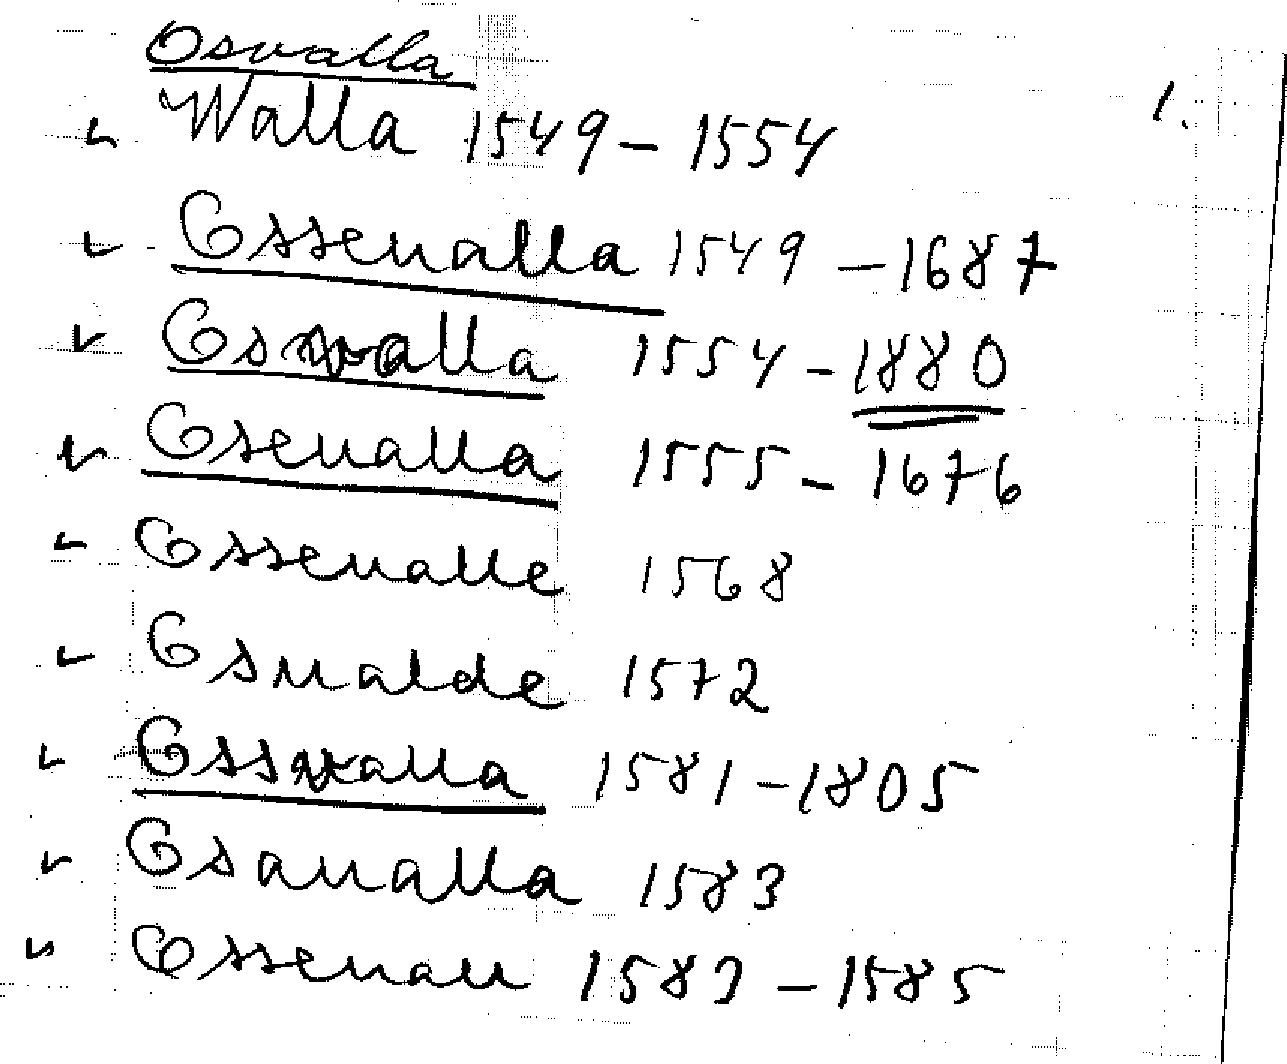 Osvalla
1.
Walla 1549-1554
Ossenalla 1549-1687
Osvalla 1554-1880
Osenalla 1555-1676
Ossenalle 1568
Osualde 1572
Ossvalla 1581-1805
Osaualla 1583
Ossenall 1583-1585